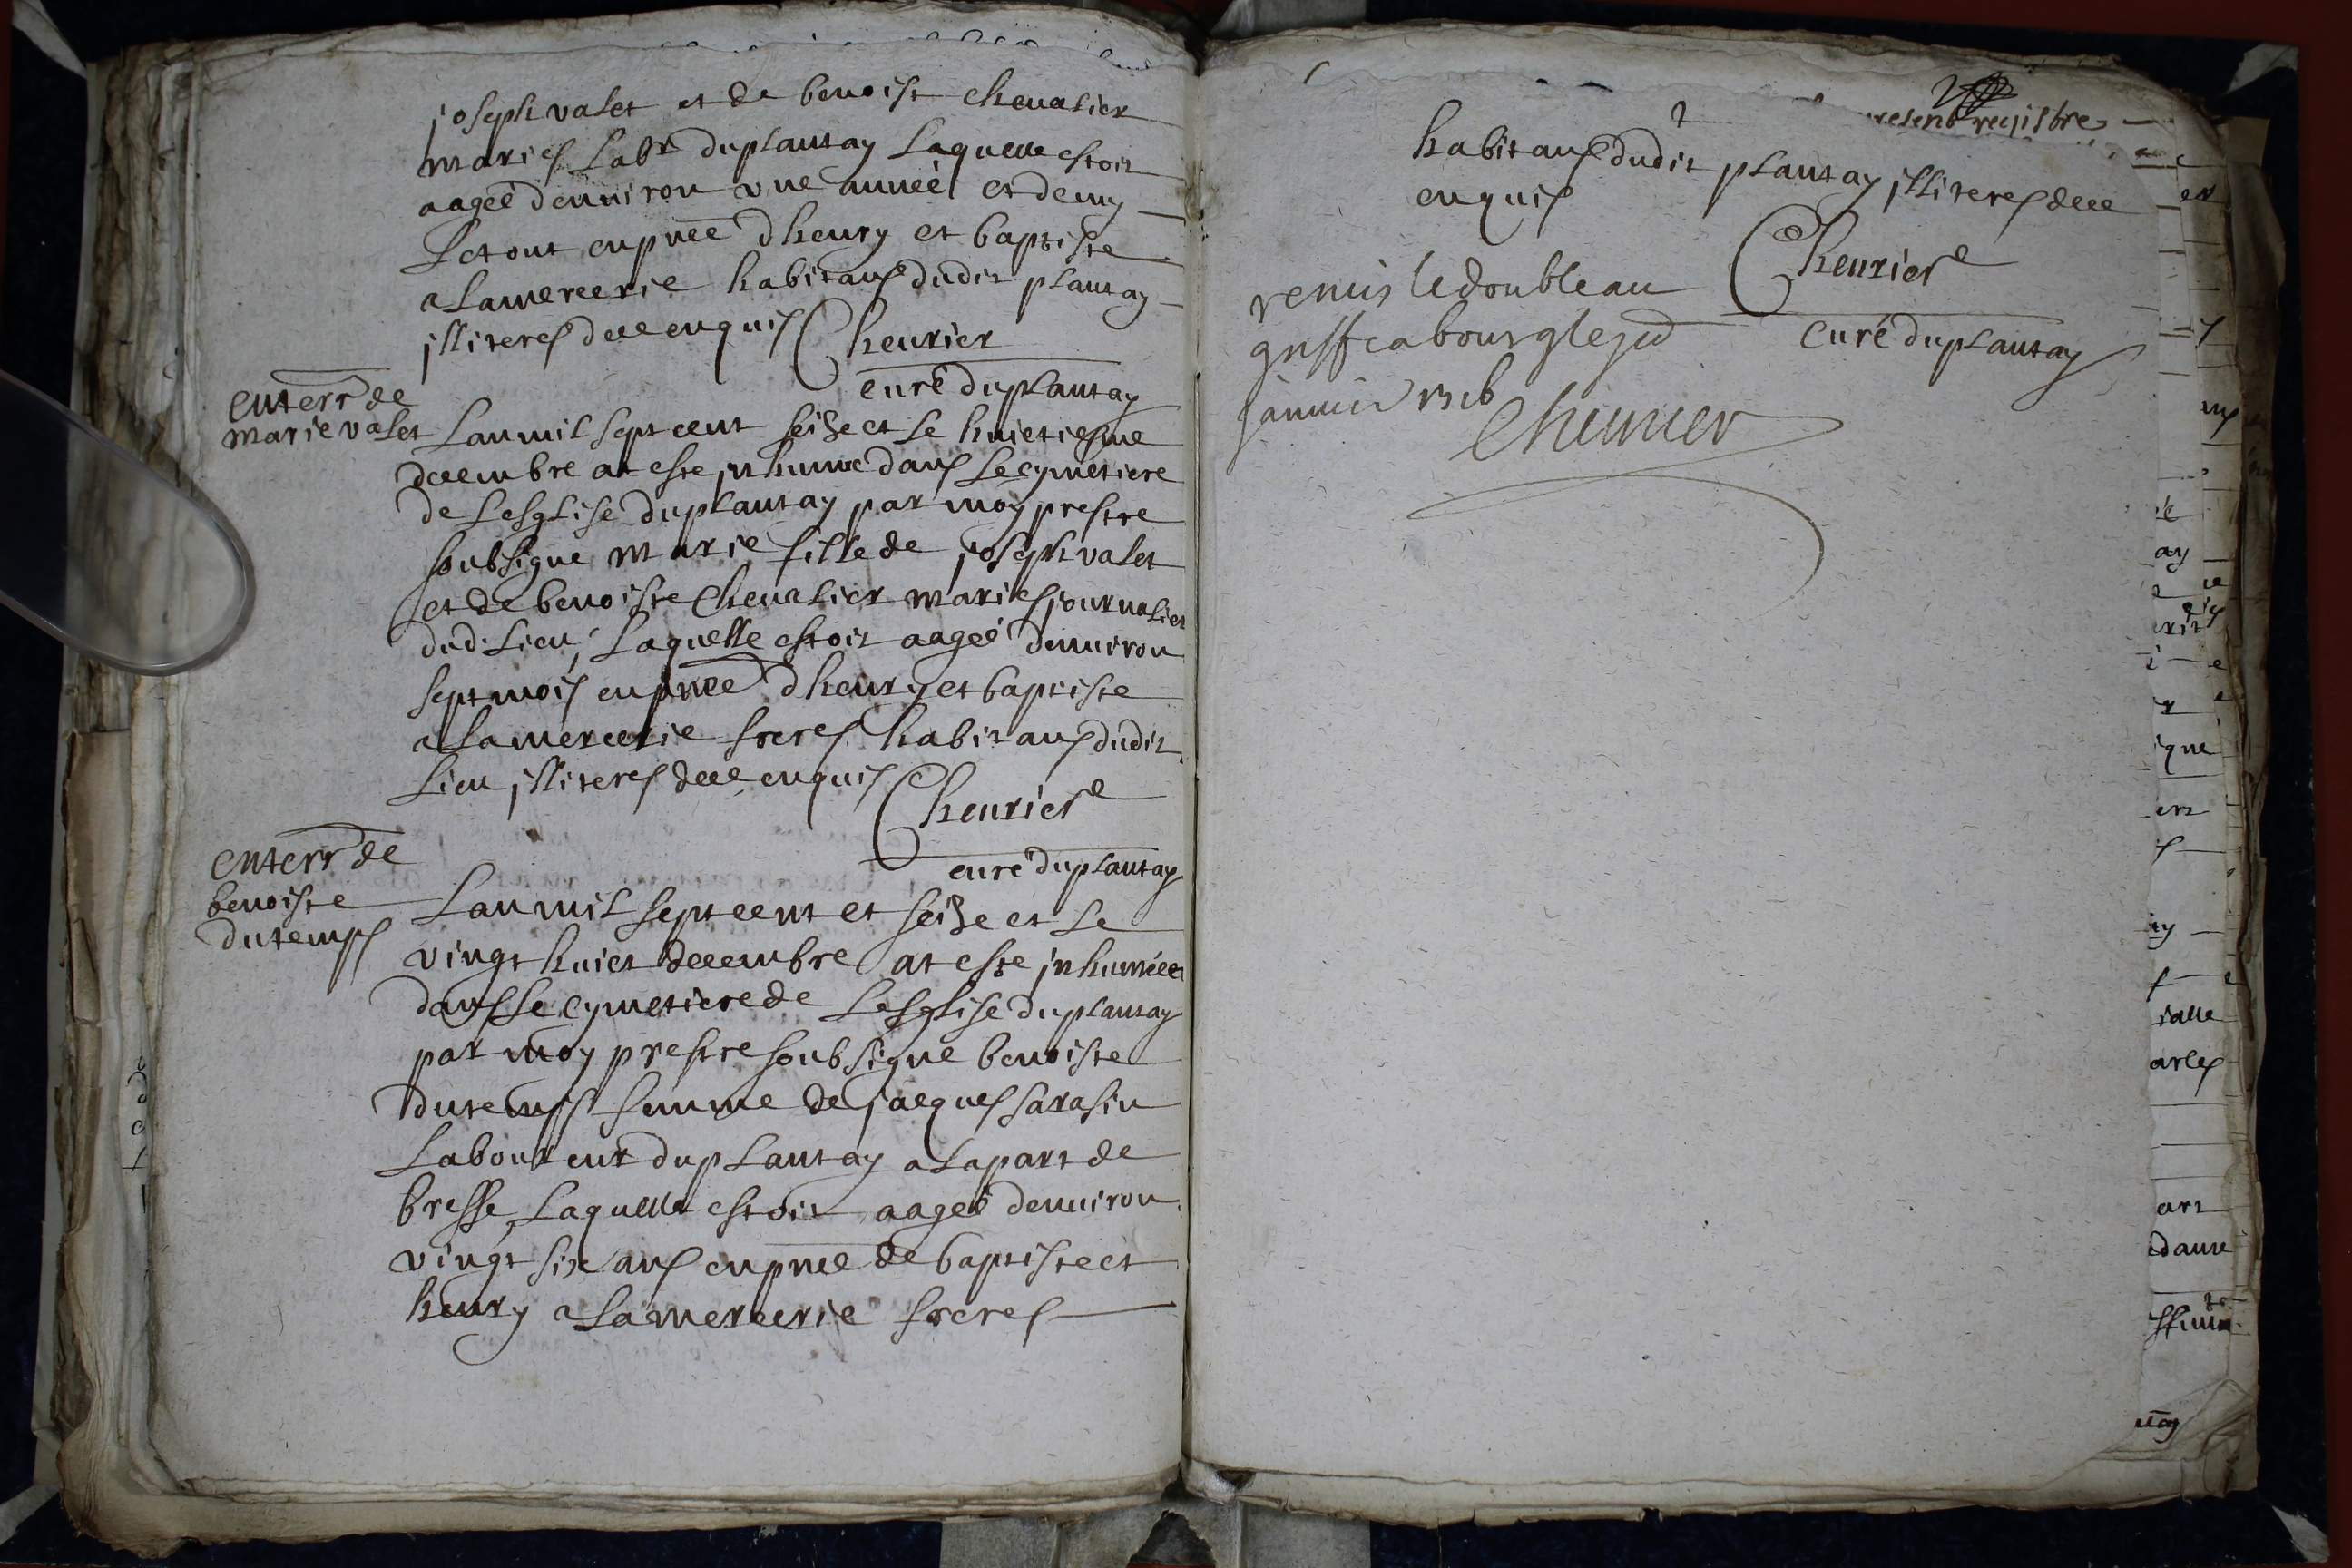 joseph valet et de benoist chevalier
mariés Labr duplantay Laquelle estoit
aageé denuiron une anneé et demy
Letout enpnce dhenry et baptiste
alamercerie habitans dudit plantay
jlliterés dece enquis Cheurier
curé duplantay
enterrt de
marie valet
Lanmil sept cent seize et Le huictiesme
decembre at esté jnhumé dans Le cymetiere
de Lesglise duplantay par moy prestre
soubsigné marie fille de joseph valet
et de benoiste Chevalier mariés journalier
dud. Lieu, Laquelle estoit aageé denuiron
sept mois enpnce dhenry et baptiste
alamercerie freres habitans dudit
Lieu jlliterés dece enquis
Cheurier
curé duplantay
enterrt de
benoiste
dutemps
Lan mil sept cent et seize et Le
vingt huict decembre at esté jnhumée
dans Le cymetiere de Lesglise duplantay
par moy prestre soubsigné benoiste
dutemps femme de jacques sarasin
Laboureur duplantay alapart de
bresse, Laquelle estoit aageé denuiron
vingt six ans enpnce de baptiste et
henry alamercerie freres
present registre
habitans dudit plantay jlliterés dece
enquis
Cheurier
curé duplantay
remis ledoubleau
greffe abourg le
januier
Cheurier